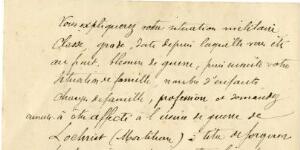 Vous expliquerez votre situation militaire
Classe, grade, date depuis laquelle vous êtes
au front, blessures de guerre, puis ensuite votre
situation de famille, nombre d'enfants
charges de famille, profession et demandez
à être affecté à l'usine de guerre de
Lochrist (Morbihan) titre de forgeron